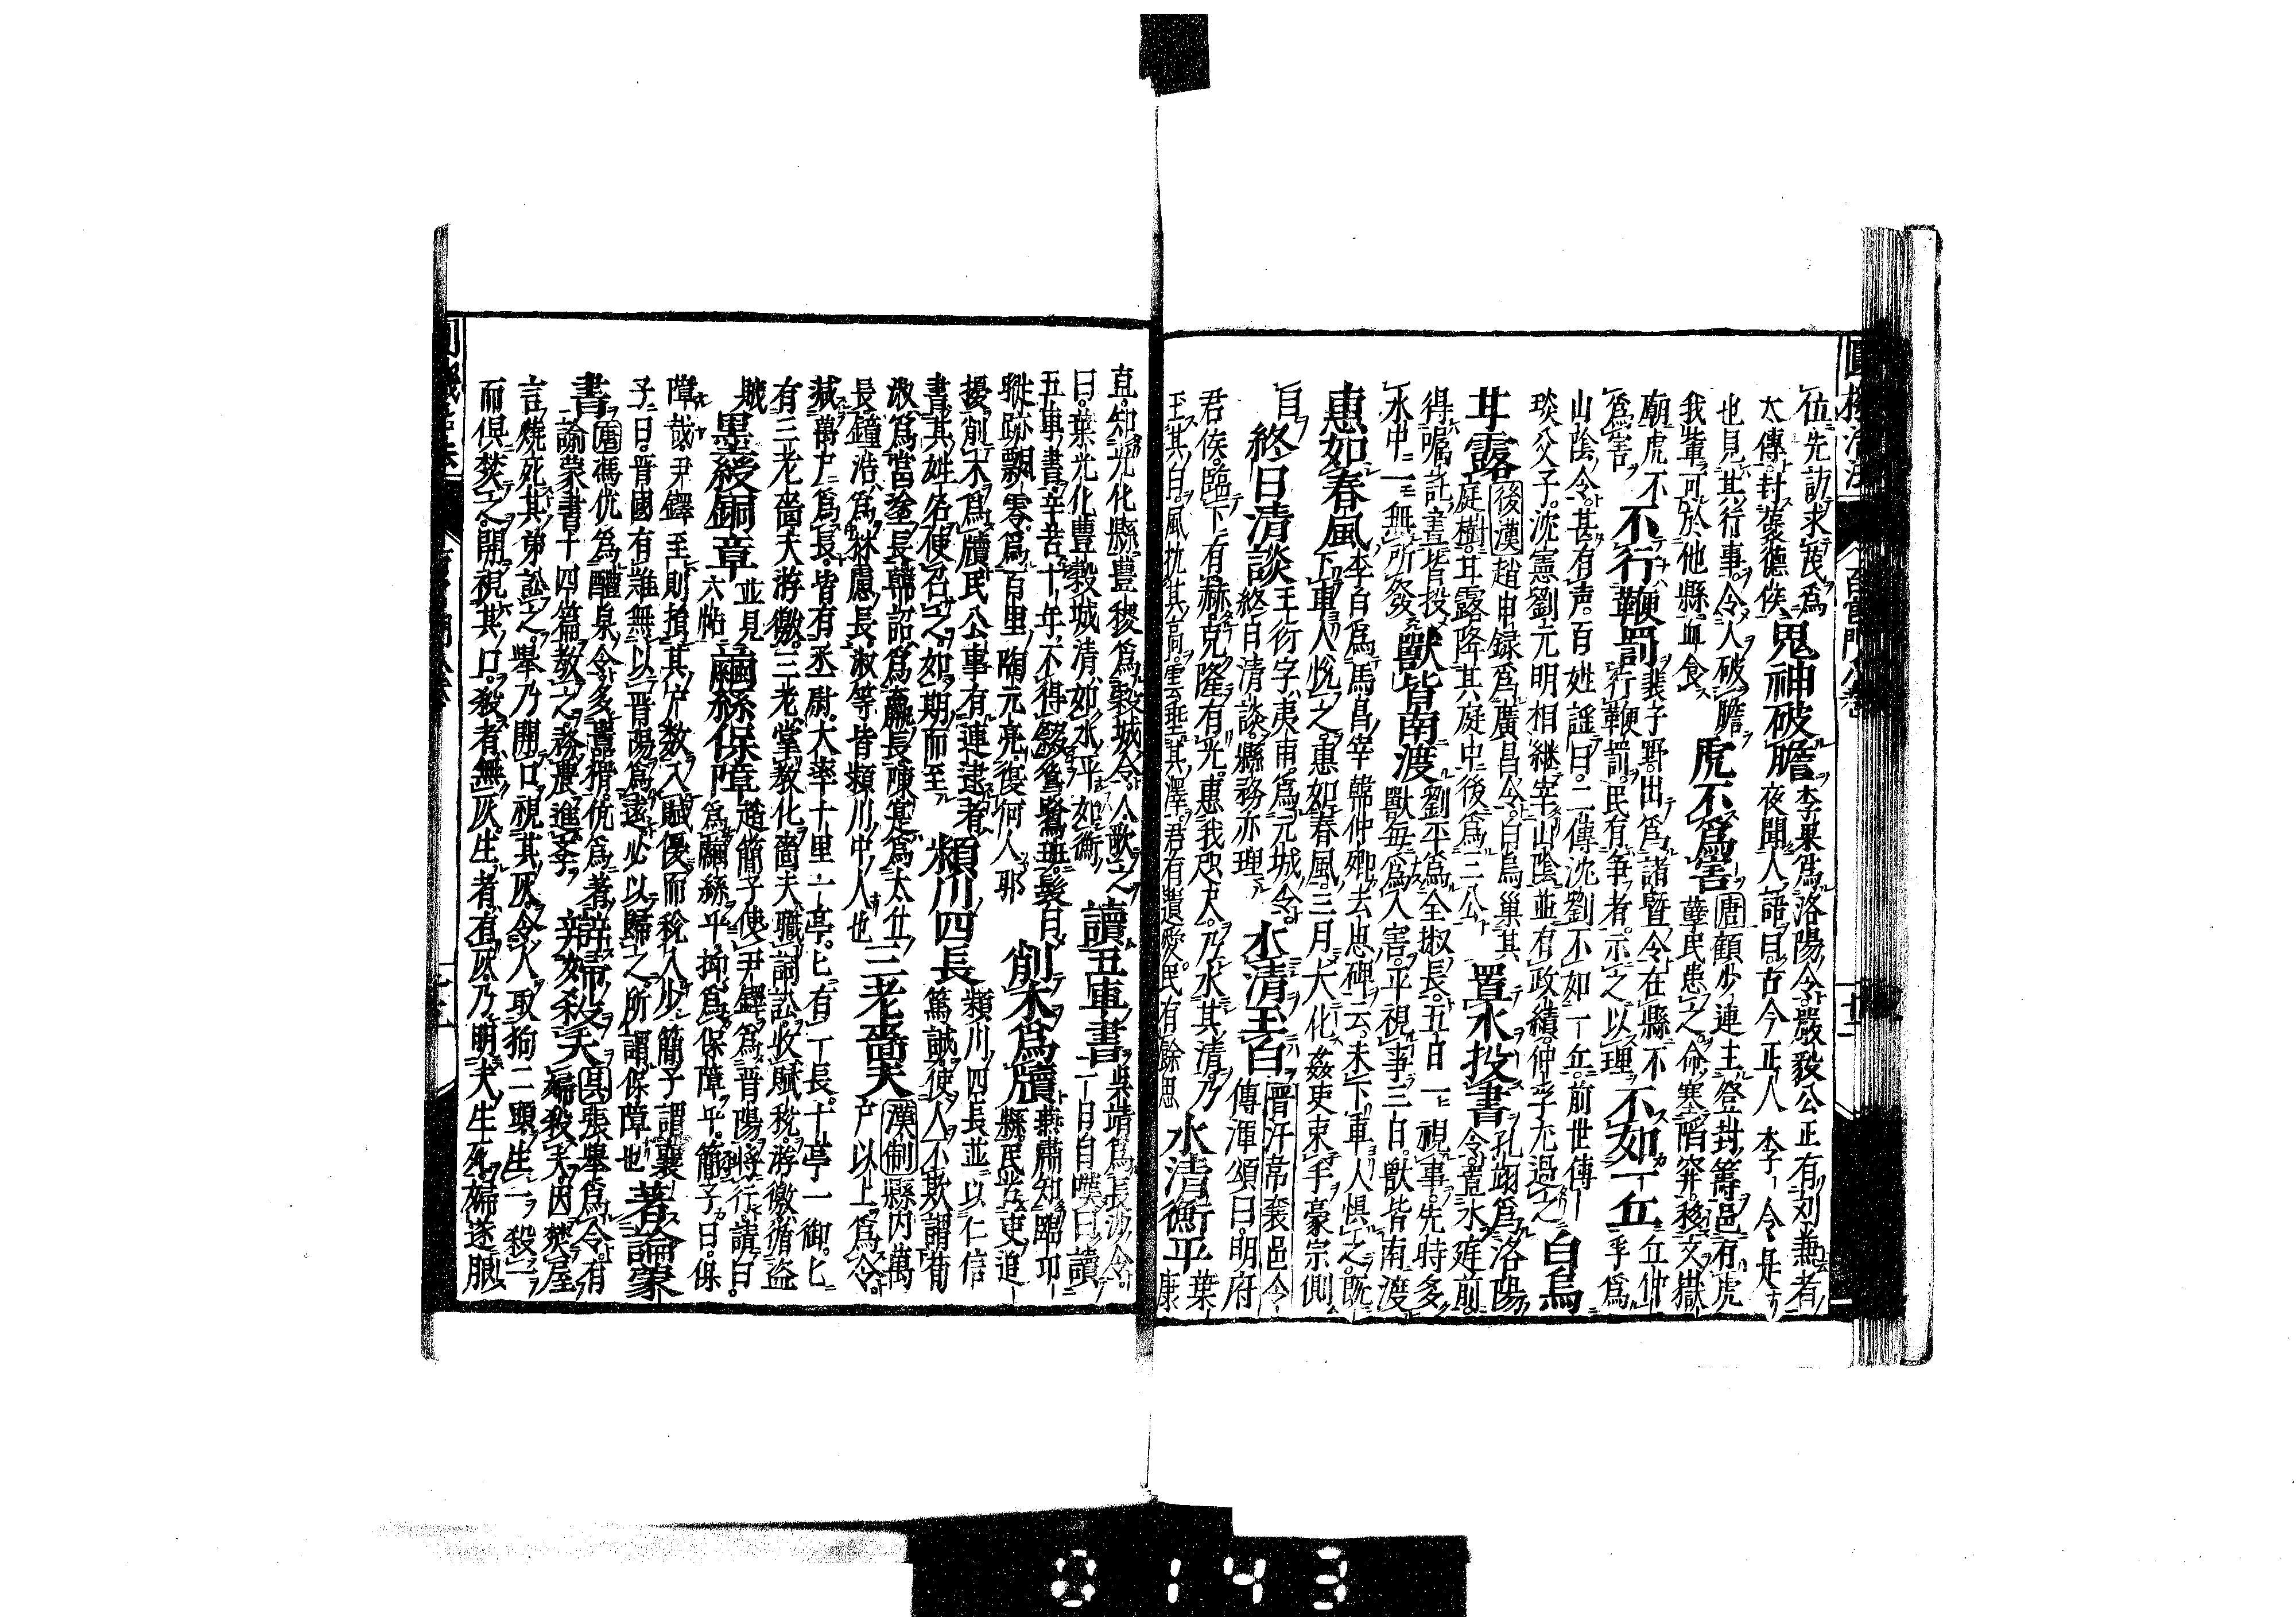 位先訪求茂爲 鬼神破膽 李果爲洛陽令嚴毅公正有刘兼者
太傳封襃德侯 夜聞人語曰古今正人李令是
也見其行事令人破膽 虎不爲害 唐顧少連主登封簿邑有虎
我輩可於他縣血食 孽民患之命塞陷穽移文嶽
廟虎不 不行鞭罰 裴子野出爲諸暨令在縣不 不如一丘 丘仲
爲害 行鞭罰民有爭者示之以理 孚爲
山陰令甚有声百姓謠曰二傳沈劉不如一丘前世傳
琰父子沈憲劉元明相継宰山陰並有政績仲孚尤過之 白烏
甘露 後漢趙申録爲廣昌令白烏巢其 置水投書 孔翊爲洛陽
庭樹甘露降其庭中後爲三公 令置水庭前
得囑託書皆投 獸皆南渡 劉平爲全椒長五日一視事先時多
水中一無所發 獸毎爲人害平視事三日獸皆南渡
惠如春風 李白爲馬昌宰韓仲卿去思碑云未下車人惧之既
下車人悦之惠如春風三月大化姦吏束手豪宗側
目 終日清談 王衍字夷甫爲元城令 水清玉白 晋汗常襃邑令
終日清談縣務亦理 傳渾頌曰明府
君侯臨下有赫克隆有光惠我邑人乃水其清乃 水清衡平 葉
玉其白風抗其高雲垂其澤君有遺愛民有餘思 康
直知光化縣豊稷爲穀城令人歌之 讀五車書 吳靖爲長沙令
曰葉光化豊穀城清如水平如衡 一日自嘆曰讀
五車書辛苦十年不得綴鴛鷺班髮 削木爲牘 燕肅知臨邛
蹤跡飄零爲百里陶元亮復何人耶 縣民苦吏追
擾削木爲牘民公事有連逮者 潁川四長 潁川四長並以仁信
書其姓名使召之如期而至 篤誠使人不欺謂荀
淑爲當塗長韓韶爲嬴長陳寔爲太丘 三老嗇夫 漢制縣内萬
長鐘浩爲林慮長淑等皆潁川中人也 戸以上爲令
減萬戸爲長皆有丞尉大率十里一亭亡有一長十亭一御亡
有三老嗇夫游徼三老掌教化嗇夫職詞訟收賦稅游徼循盗
賊 墨綬銅章 並見六帖 繭絲保障 趙簡子使尹鐸爲晋陽將行請曰
爲繭絲乎抑爲保障乎簡子曰保
障哉尹鐸至則損其戸数入賦優而稅入少簡子謂襄
子曰晋國有難無以晋陽爲遠必以歸之所謂保障也 著諭蒙
書 唐馮伉爲醴泉令多嚚猾伉爲著 辨婦殺夫 呉張舉爲令有
諭蒙書十四篇教之務農進孝 婦殺夫因焚屋
言燒死其弟訟之舉乃開口視其灰令人取狗二頭生一殺一
而倶焚之開視其口殺者無灰生者有灰乃明夫生死婦遂服